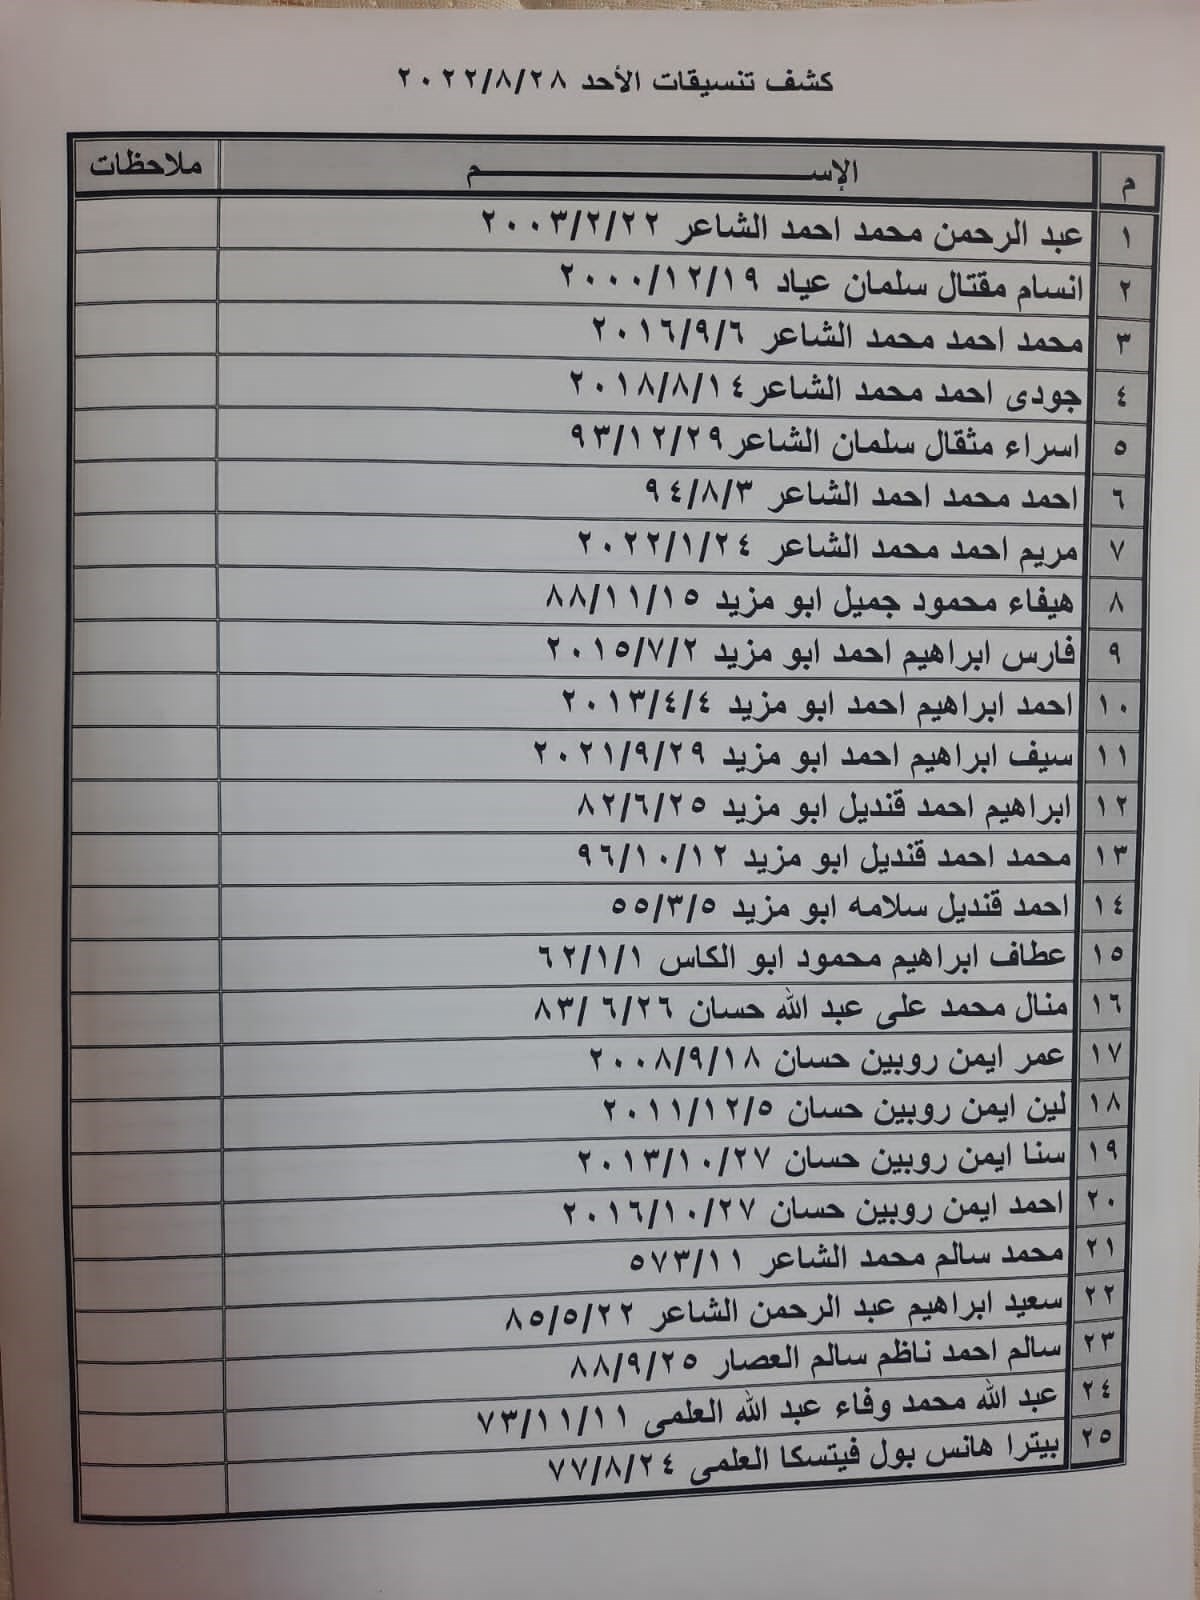 كشف تنسيقات الأحد ٢٠٢٢/٨/٢٨
م الإســـــــــــــــــــــم ملاحظات
١ عبد الرحمن محمد احمد الشاعر ٢٠٠٣/٢/٢٢
٢ انسام مقتال سلمان عياد ٢٠٠٠/١٢/١٩
٣ محمد احمد محمد الشاعر ٢٠١٦/٩/٦
٤ جودى احمد محمد الشاعر ٢٠١٨/٨/١٤
٥ اسراء مثقال سلمان الشاعر ٩٣/١٢/٢٩
٦ احمد محمد احمد الشاعر ٩٤/٨/٣
٧ مريم احمد محمد الشاعر ٢٠٢٢/١/٢٤
٨ هيفاء محمود جميل ابو مزيد ٨٨/١١/١٥
٩ فارس ابراهيم احمد ابو مزيد ٢٠١٥/٧/٢
١٠ احمد ابراهيم احمد ابو مزيد ٢٠١٣/٤/٤
١١ سيف ابراهيم احمد ابو مزيد ٢٠٢١/٩/٢٩
١٢ ابراهيم احمد قنديل ابو مزيد ٨٢/٦/٢٥
١٣ محمد احمد قنديل ابو مزيد ٩٦/١٠/١٢
١٤ احمد قنديل سلامه ابو مزيد ٥٥/٣/٥
١٥ عطاف ابراهيم محمود ابو الكاس ٦٢/١/١
١٦ منال محمد على عبد الله حسان ٨٣/٦/٢٦
١٧ عمر ايمن روبين حسان ٢٠٠٨/٩/١٨
١٨ لين ايمن روبين حسان ٢٠١١/١٢/٥
١٩ سنا ايمن روبين حسان ٢٠١٣/١٠/٢٧
٢٠ احمد ايمن روبين حسان ٢٠١٦/١٠/٢٧
٢١ محمد سالم محمد الشاعر ٥٧٣/١١
٢٢ سعيد ابراهيم عبد الرحمن الشاعر ٨٥/٥/٢٢
٢٣ سالم احمد ناظم سالم العصار ٨٨/٩/٢٥
٢٤ عبد الله محمد وفاء عبد الله العلمى ٧٣/١١/١١
٢٥ بيترا هانس بول فيتسكا العلمى ٧٧/٨/٢٤